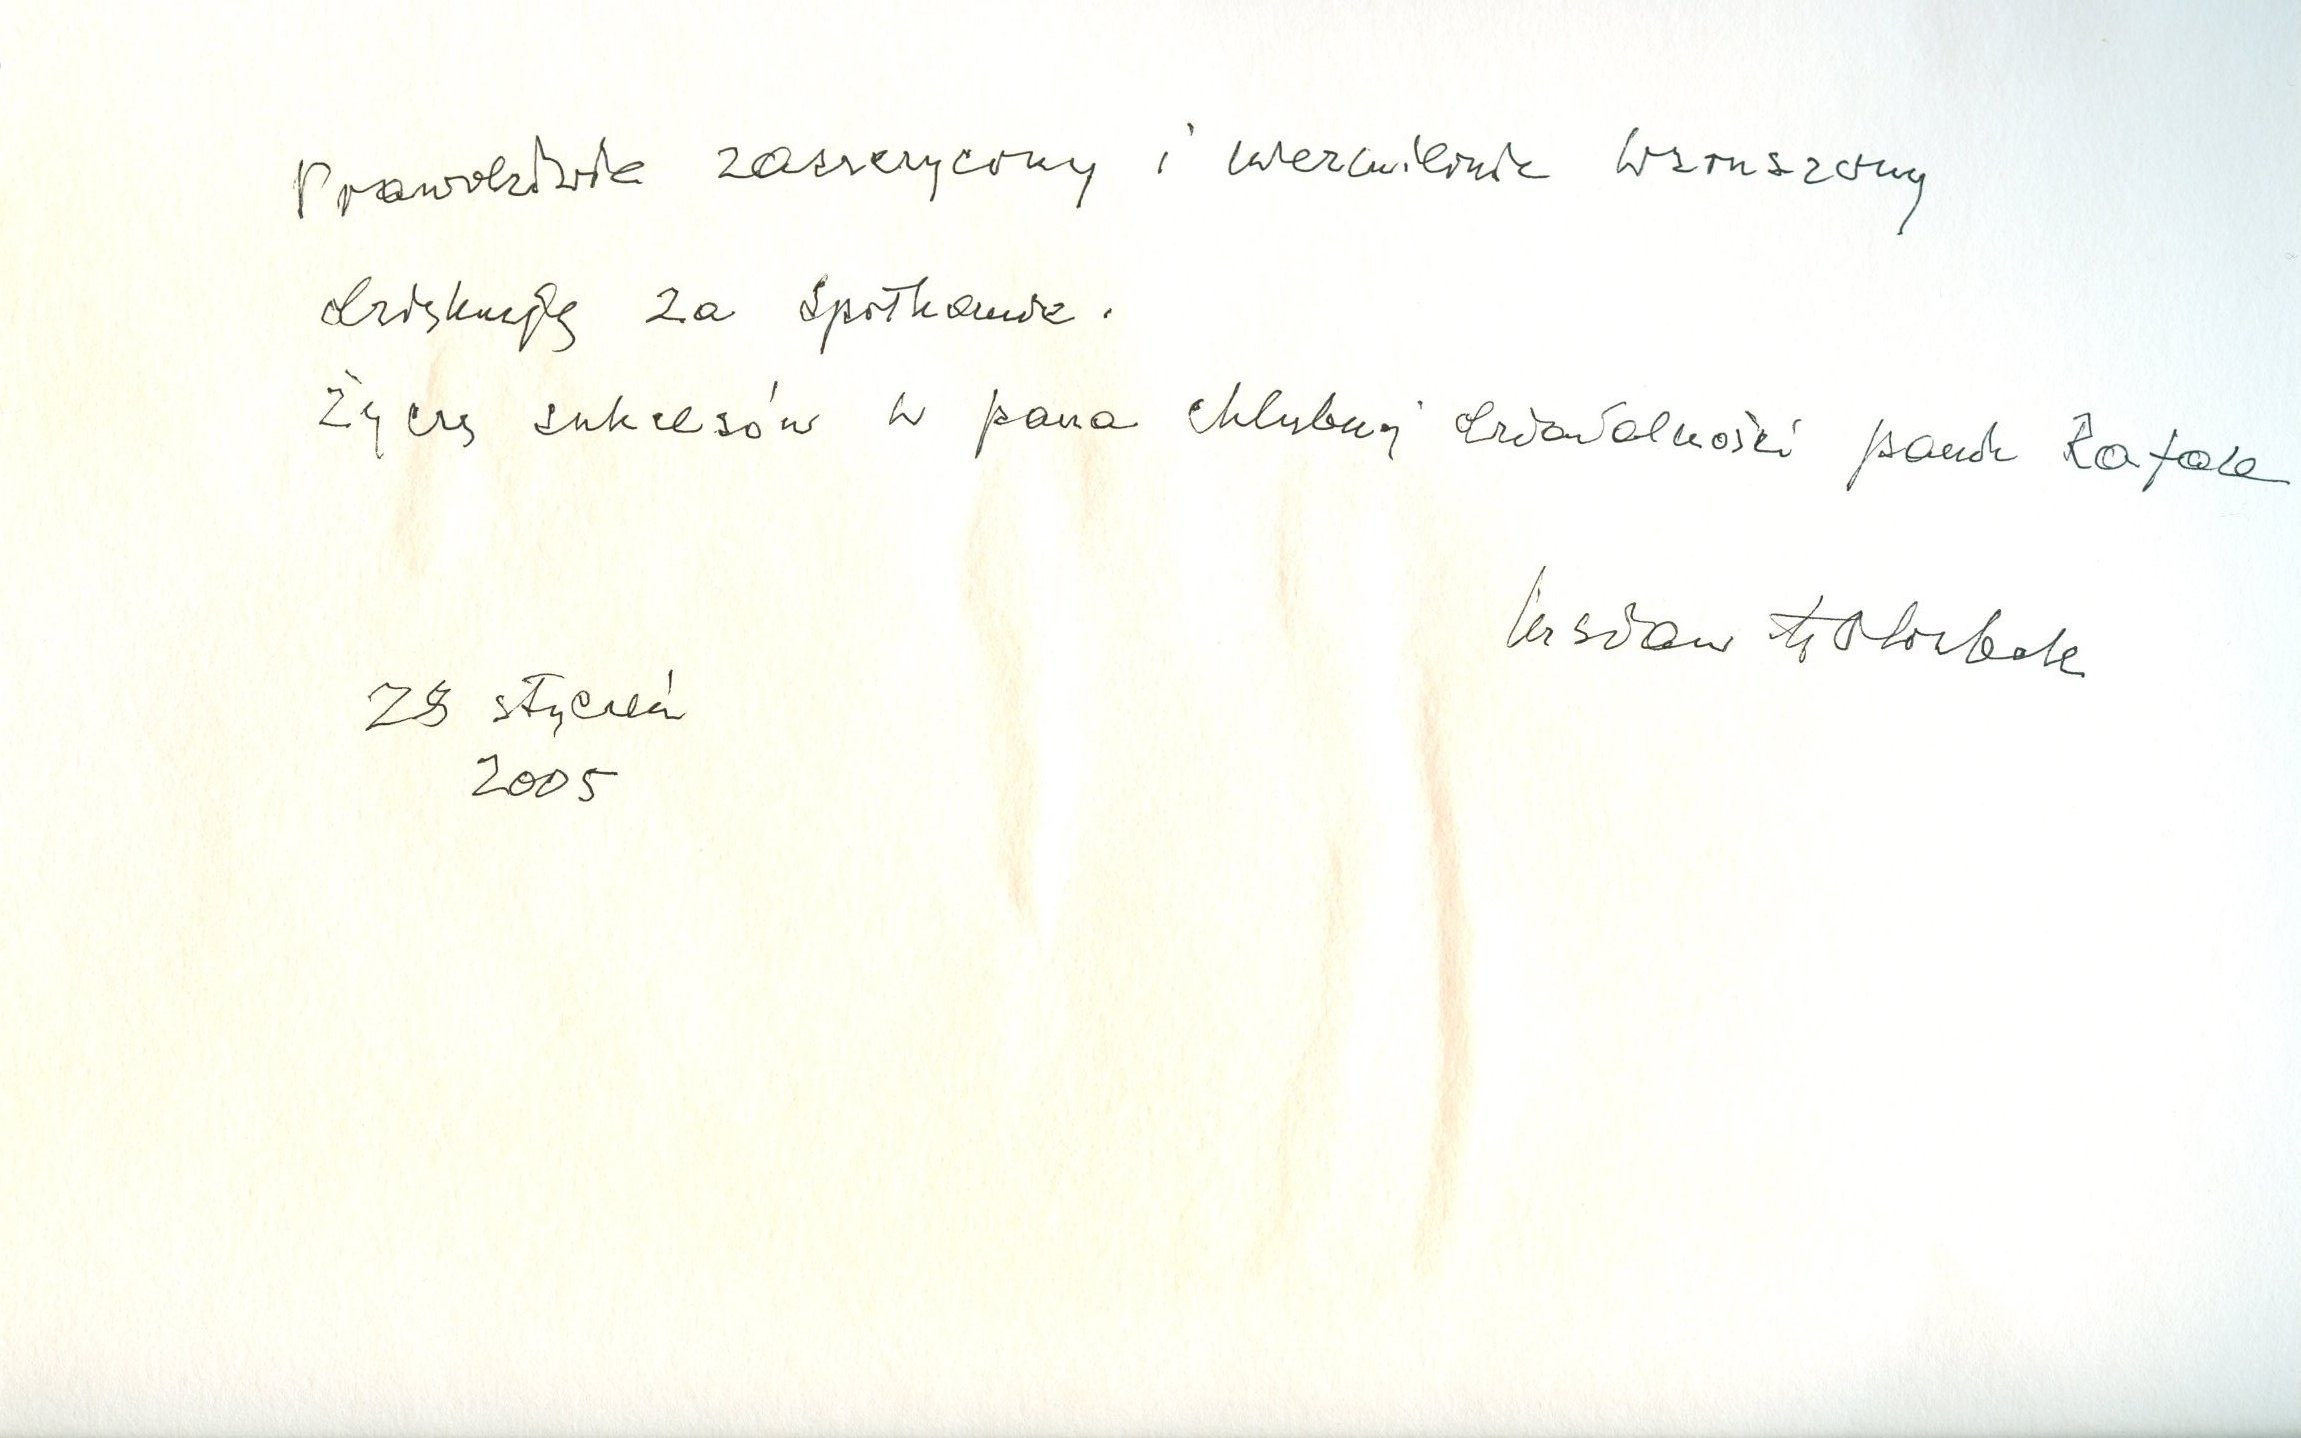 Prawdziwie zaszczycony i niezmiernie wzruszony
dziękuję za spotkanie.
Życzę sukcesów w pana chlubnej działalności panie Rafale
28 styczeń
2005